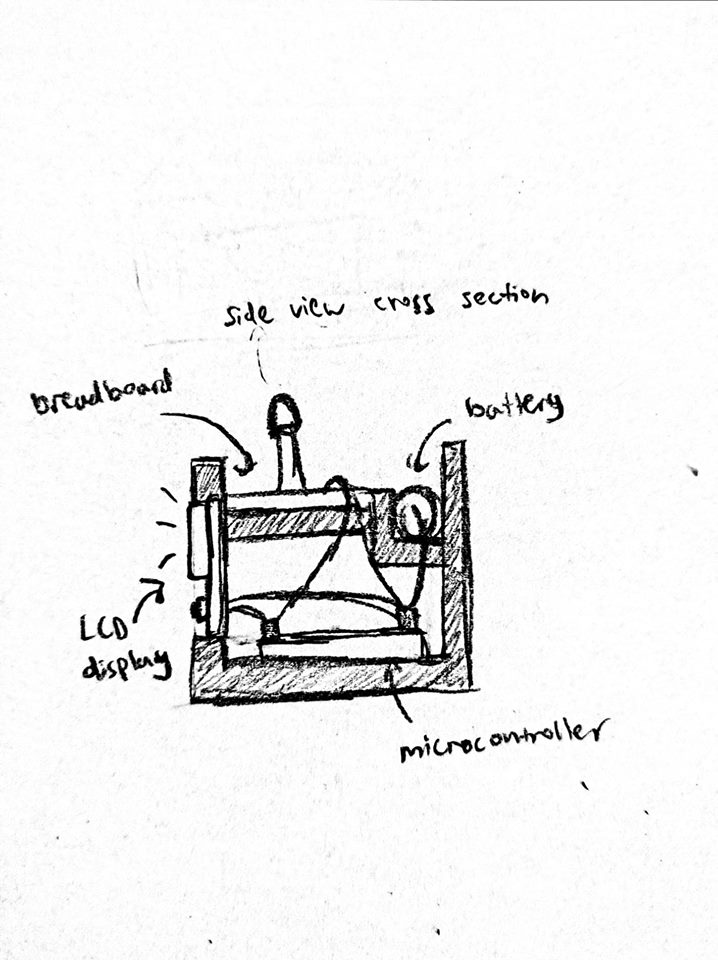 side view cross section
breadboard
battery
LCD
display
microcontroller